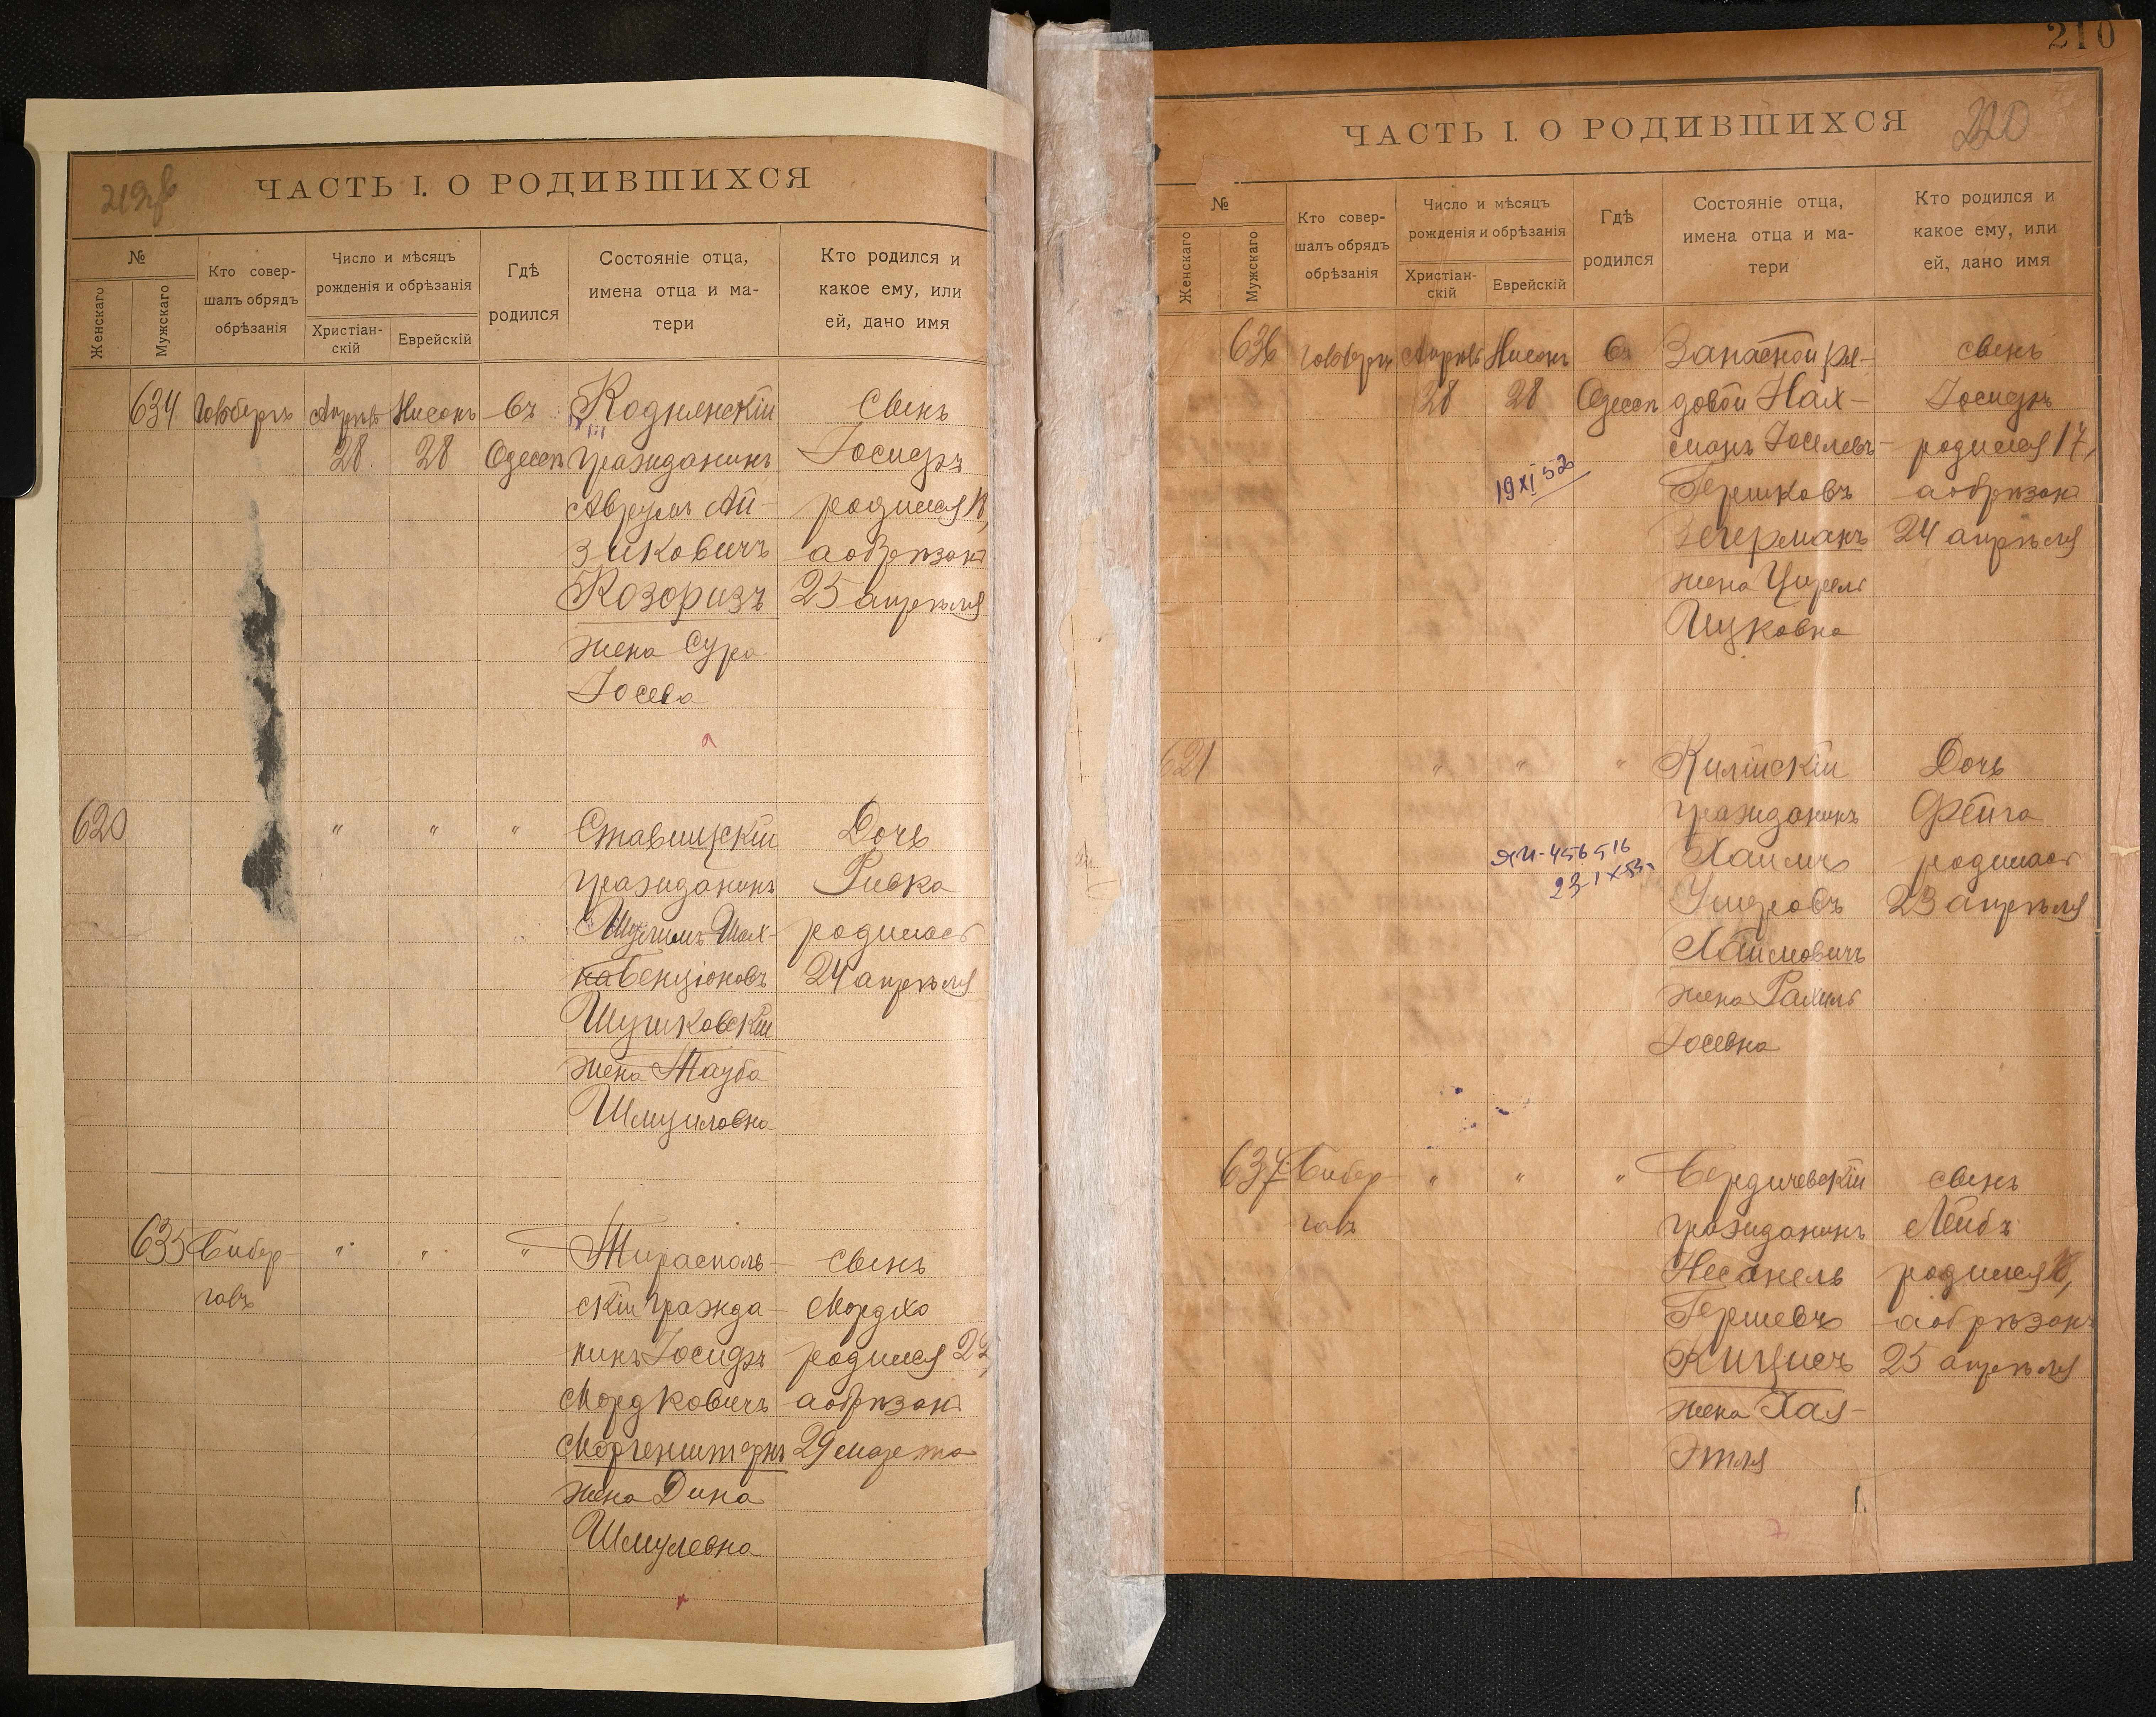 ЧАСТЬ I. О РОДИВШИХСЯ
№
Женскаго
Мужскаго
Кто совер-
шалъ обрядъ
обрѣзанія
Число и мѣсяцъ
рожденія и обрѣзанія
Христіан-
скій
Еврейскій
Гдѣ
родился
Состояніе отца,
имена отца и ма-
тери
Кто родился и
какое ему, или
ей, дано имя
634
Апрѣль
28
Нисонъ
28
въ
Одессѣ
гражданинъ
Аврумъ Ай-
зиковичъ
Козоризъ
жена Сура
Іосева
сынъ
Іосифъ
родился 18,
а обрѣзанъ
25 апрѣля
620
"
"
"
Ставищскій
гражданинъ
Бенціоновъ
Шушковскій
жена Тауба
Шмуиловна
Дочь
Ривка
родилась
24 апрѣля
635
Бибер-
галъ
"
"
"
Тирасполь-
скій гражда-
нинъ Іосифъ
Мордковичъ
Моргенштернъ
жена Дина
Шмулевна
сынъ
Мордко
родился 22,
а обрѣзанъ
29 марта
210
ЧАСТЬ I. О РОДИВШИХСЯ
220
№
Женскаго
Мужскаго
Кто совер-
шалъ обрядъ
обрѣзанія
Число и мѣсяцъ
рожденія и обрѣзанія
Христіан-
скій
Еврейскій
Гдѣ
родился
Состояніе отца,
имена отца и ма-
тери
Кто родился и
какое ему, или
ей, дано имя
636
Апрѣль
28
Нисонъ
28
въ
Одессѣ
Запасной ря-
довой Нах-
манъ Іоселевъ-
Гершковъ
Зегерманъ
жена Ципель
Ицковна
сынъ
Іосифъ
родился 17,
а обрѣзанъ
24 апрѣля
19 XI 52
621
"
"
"
Килійскій
гражданинъ
Хаимъ
Хаимовичъ
жена Рахиль
Іосевна
Дочь
Фейга
родилась
23 апрѣля
ЯИ-456516
637
Бибер-
галъ
"
"
"
Бердичевскій
гражданинъ
Несанель
Гершевъ
Кицисъ
жена Хая-
Этля
сынъ
Лейбъ
родился 18,
а обрѣзанъ
25 апрѣля